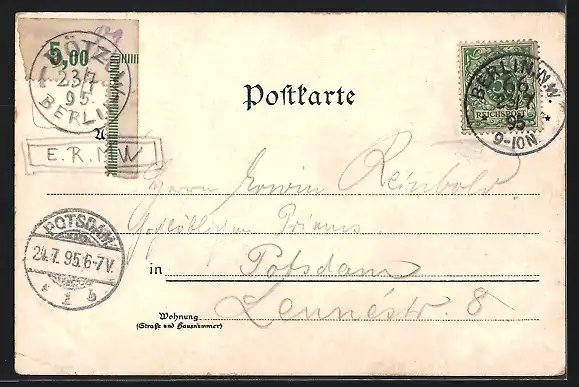 5,00
PLÖTZ
23/7
95.
BERLIN
E.R.M W
Postkarte
BERLIN, N.W.
23/7
95
9-10N.
REICHSPOST
Herrn Erwin Reinbold
in Potsdam
Lennéstr. 8
Wohnung
(Straße und Hausnummer)
POTSDAM
24.7.95.6-7V.
* 1 b